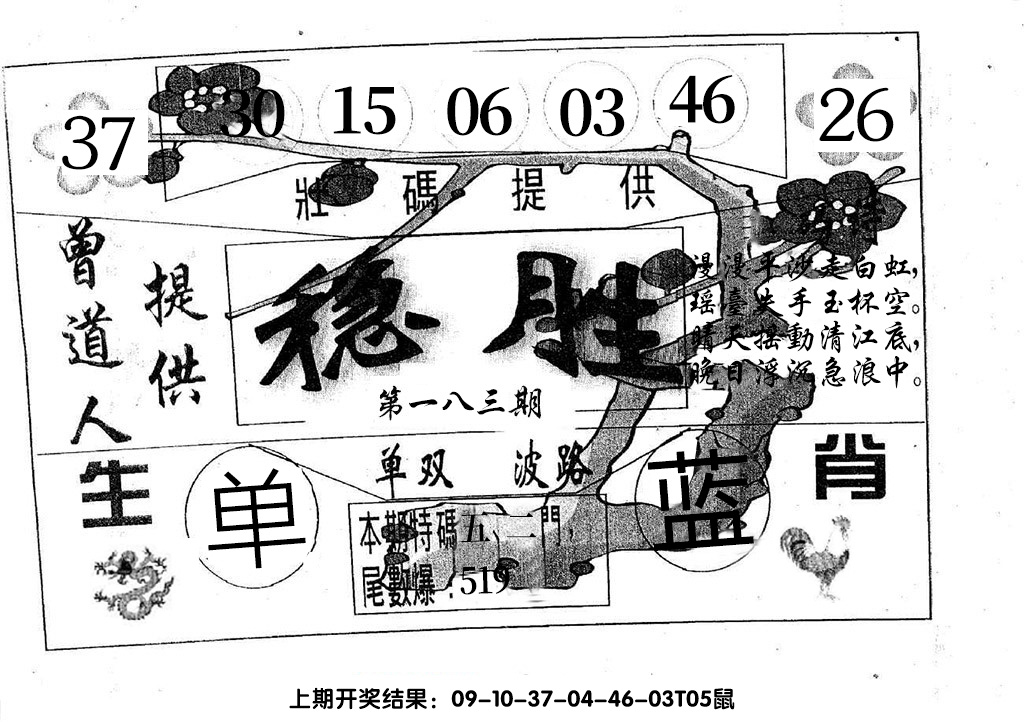 37 30 15 06 03 46 26
壯碼提供
曾道人
提供
稳胜
第一八三期
漫漫平沙走白虹，
瑶臺失手玉杯空。
晴天摇動清江底，
晚日浮沉急浪中。
单双 波路
生肖
单
蓝
本期特碼五、二門，
尾數爆：519
上期开奖结果：09-10-37-04-46-03T05鼠